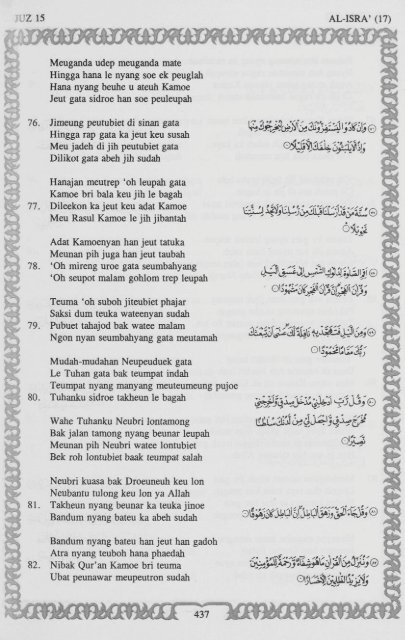 JUZ 15
AL-ISRA' (17)
Meuganda udep meuganda mate
Hingga hana le nyang soe ek peuglah
Hana nyang beuhe u ateuh Kamoe
Jeut gata sidroe han soe peuleupah
76. Jimeung peutubiet di sinan gata
Hingga rap gata ka jeut keu susah
Meu jadeh di jih peutubiet gata
Dilikot gata abeh jih sudah
وَإِنْ كَادُوا لَيَسْتَفِزُّونَكَ مِنَ الْأَرْضِ لِيُخْرِجُوكَ مِنْهَا
وَإِذًا لَا يَلْبَثُونَ خِلَافَكَ إِلَّا قَلِيلًا
Hanajan meutrep ‘oh leupah gata
Kamoe bri bala keu jih le bagah
77. Dileekon ka jeut keu adat Kamoe
Meu Rasul Kamoe le jih jibantah
سُنَّةَ مَنْ قَدْ أَرْسَلْنَا قَبْلَكَ مِنْ رُسُلِنَا وَلَا تَجِدُ لِسُنَّتِنَا
تَحْوِيلًا
Adat Kamoenyan han jeut tatuka
Meunan pih juga han jeut taubah
78. ‘Oh mireng uroe gata seumbahyang
‘Oh seupot malam gohlom trep leupah
أَقِمِ الصَّلَاةَ لِدُلُوكِ الشَّمْسِ إِلَى غَسَقِ اللَّيْلِ
وَقُرْآنَ الْفَجْرِ إِنَّ قُرْآنَ الْفَجْرِ كَانَ مَشْهُودًا
Teuma ‘oh suboh jiteubiet phajar
Saksi dum teuka wateenyan sudah
79. Pubuet tahajod bak watee malam
Ngon nyan seumbahyang gata meutamah
وَمِنَ اللَّيْلِ فَتَهَجَّدْ بِهِ نَافِلَةً لَكَ عَسَى أَنْ يَبْعَثَكَ
رَبُّكَ مَقَامًا مَحْمُودًا
Mudah-mudahan Neupeuduek gata
Le Tuhan gata bak teumpat indah
Teumpat nyang manyang meuteumeung pujoe
80. Tuhanku sidroe takheun le bagah
وَقُلْ رَبِّ أَدْخِلْنِي مُدْخَلَ صِدْقٍ وَأَخْرِجْنِي
مُخْرَجَ صِدْقٍ وَاجْعَلْ لِي مِنْ لَدُنْكَ سُلْطَانًا
نَصِيرًا
Wahe Tuhanku Neubri lontamong
Bak jalan tamong nyang beunar leupah
Meunan pih Neubri watee lontubiet
Bek roh lontubiet baak teumpat salah
Neubri kuasa bak Droeuneuh keu lon
Neubantu tulong keu lon ya Allah
81. Takheun nyang beunar ka teuka jinoe
Bandum nyang bateu ka abeh sudah
وَقُلْ جَاءَ الْحَقُّ وَزَهَقَ الْبَاطِلُ إِنَّ الْبَاطِلَ كَانَ زَهُوقًا
Bandum nyang bateu han jeut han gadoh
Atra nyang teuboh hana phaedah
82. Nibak Qur'an Kamoe bri teuma
Ubat peunawar meupeutron sudah
وَنُنَزِّلُ مِنَ الْقُرْآنِ مَا هُوَ شِفَاءٌ وَرَحْمَةٌ لِلْمُؤْمِنِينَ
وَلَا يَزِيدُ الظَّالِمِينَ إِلَّا خَسَارًا
437